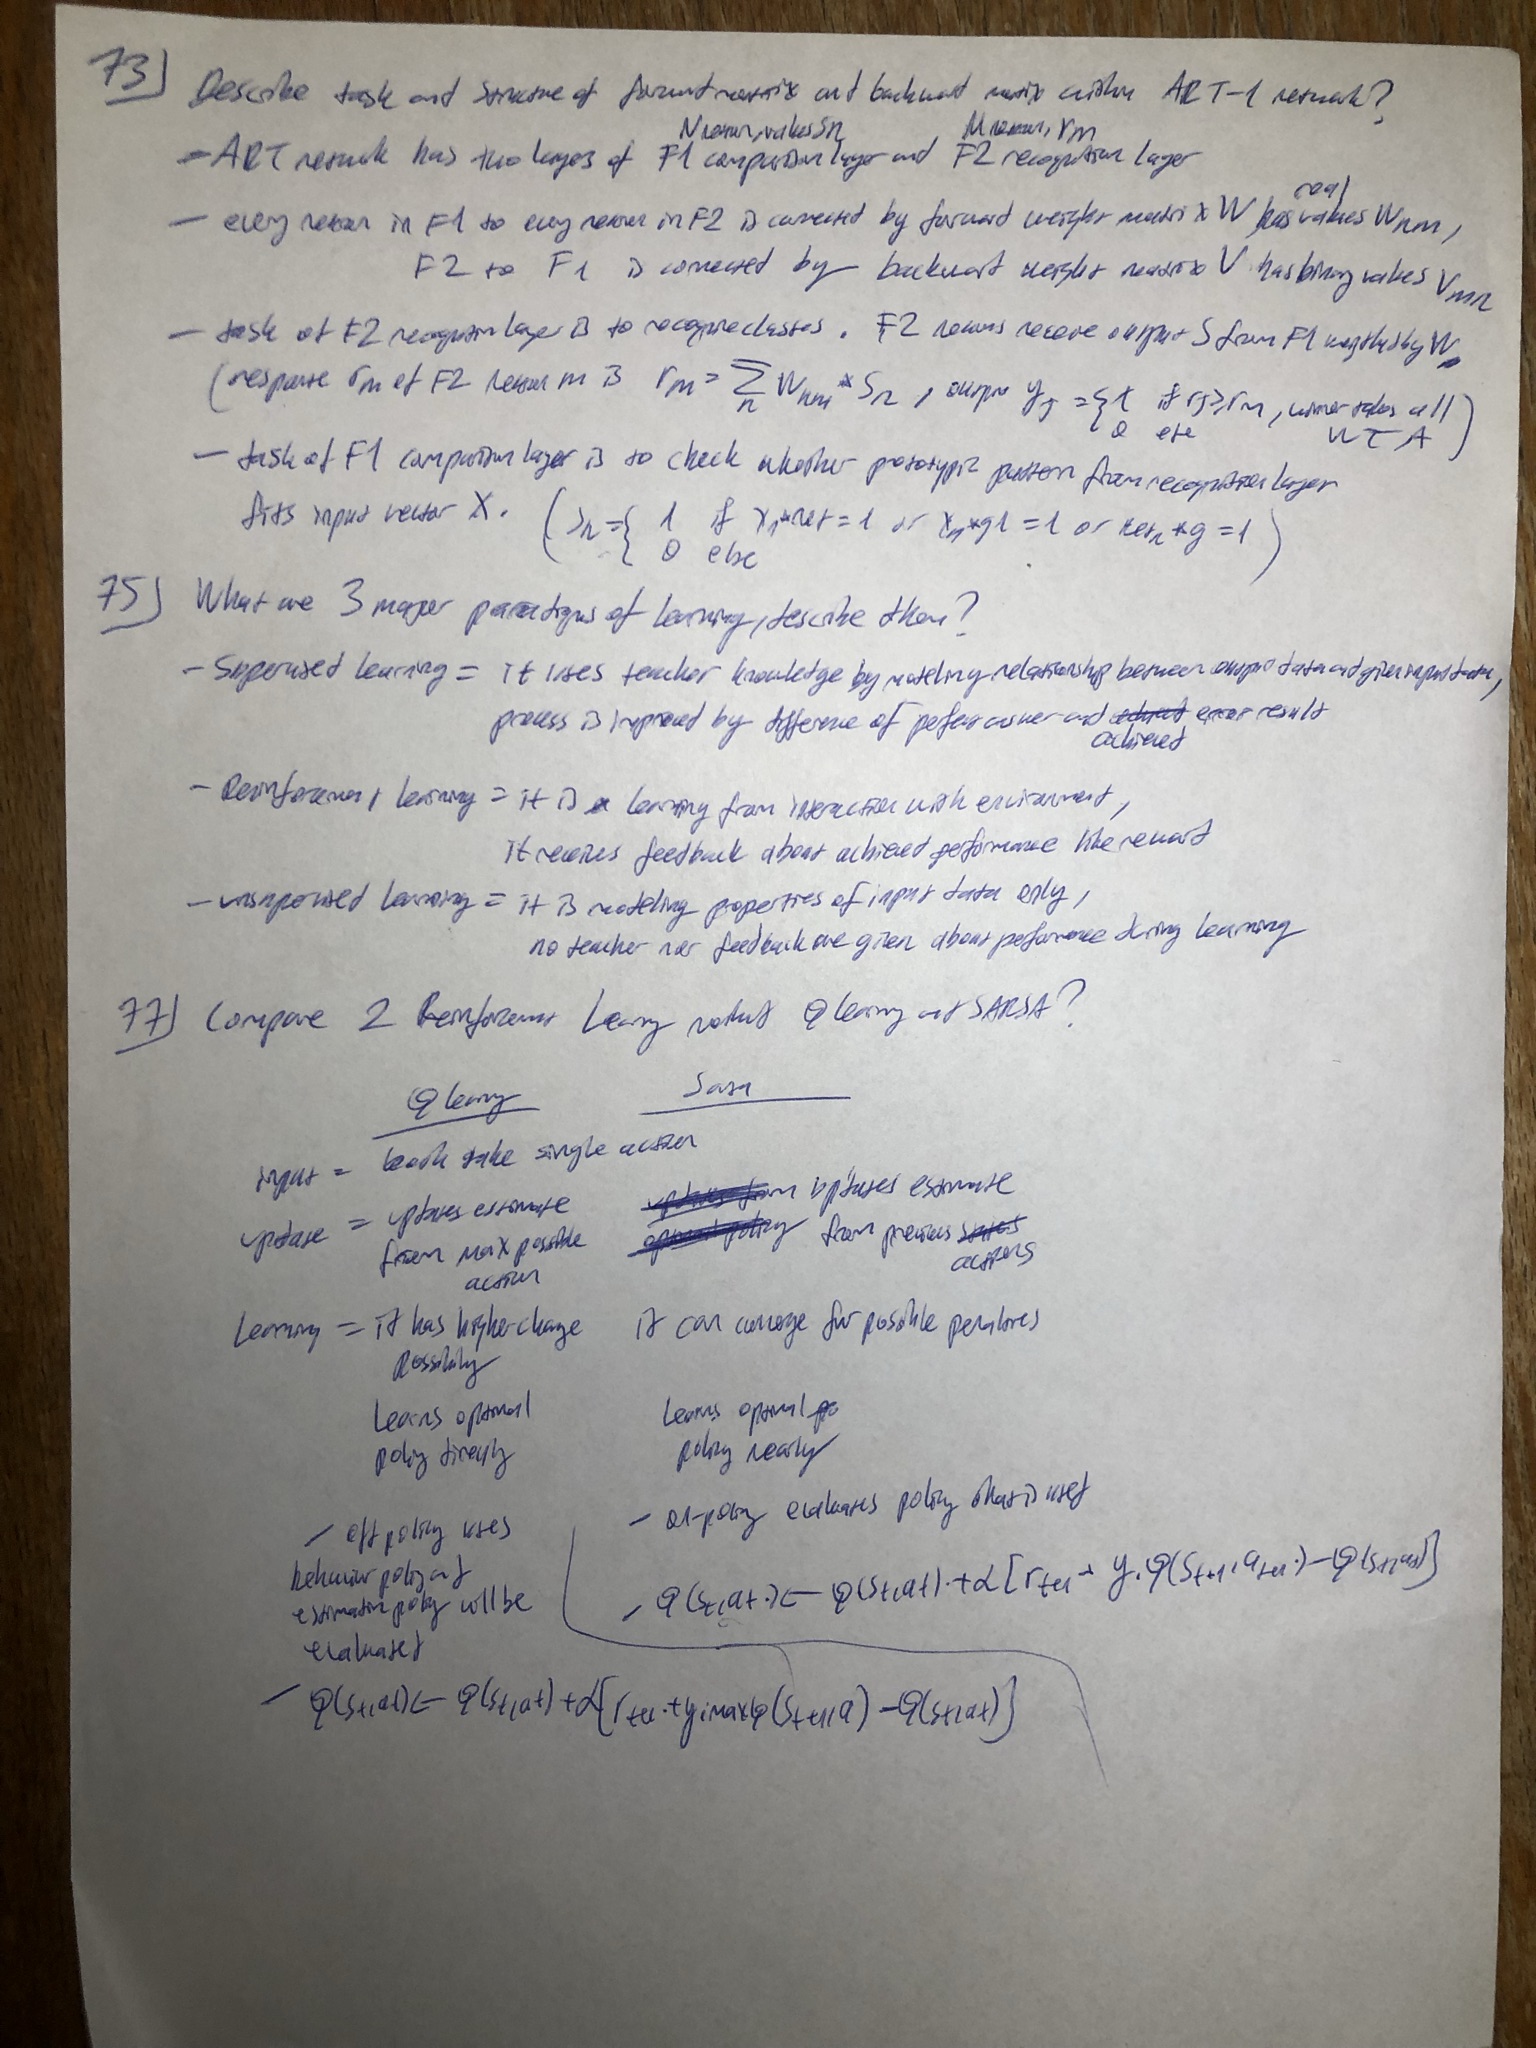 73) Describe task and structure of forward matrix and backward matrix within ART-1 network?
N neuron, values Sn M neuron, rm
- ART network has two layers of F1 comparison layer and F2 recognition layer
real
- every neuron in F1 to every neuron in F2 is connected by forward weight matrix W has values Wnm,
F2 to F1 is connected by backward weight matrix V has binary values Vmn
- task of F2 recognition layer is to recognize classes. F2 neurons receive output S from F1 weighted by W.
(response rm of F2 neuron m is rm = Σn Wnm * Sn, output yj = { 1 if rj ≥ rm, winner takes all
0 else WTA )
- task of F1 comparison layer is to check whether prototypic pattern from recognition layer
fits input vector X. (Sn = { 1 if xn*net = 1 or xn*g1 = 1 or netn*g = 1
0 else )
75) What are 3 major paradigms of learning, describe them?
- Supervised learning = it uses teacher knowledge by modeling relationship between output data and given input data,
process is improved by difference of perfect answer and error result
achieved
- Reinforcement learning = it is learning from interaction with environment,
it receives feedback about achieved performance like reward
- unsupervised learning = it is modeling properties of input data only,
no teacher nor feedback are given about performance during learning
77) Compare 2 Reinforcement Learning Q learning and SARSA?
Q learning Sarsa
input = both take single action
update = updates estimate updates estimate
from max possible from previous
action actions
Learning = it has higher change it can converge for possible
possibility
Learns optimal Learns optimal
policy directly policy nearly
- off policy uses - on-policy evaluates policy that is used
behavior policy and
estimation policy will be
evaluated
- Q(st,at) ← Q(st,at) + α[rt+1 + γ.Q(st+1,at+1) - Q(st,at)]
- Q(st,at) ← Q(st,at) + α[rt+1 + γ.maxQ(st+1,a) - Q(st,at)]